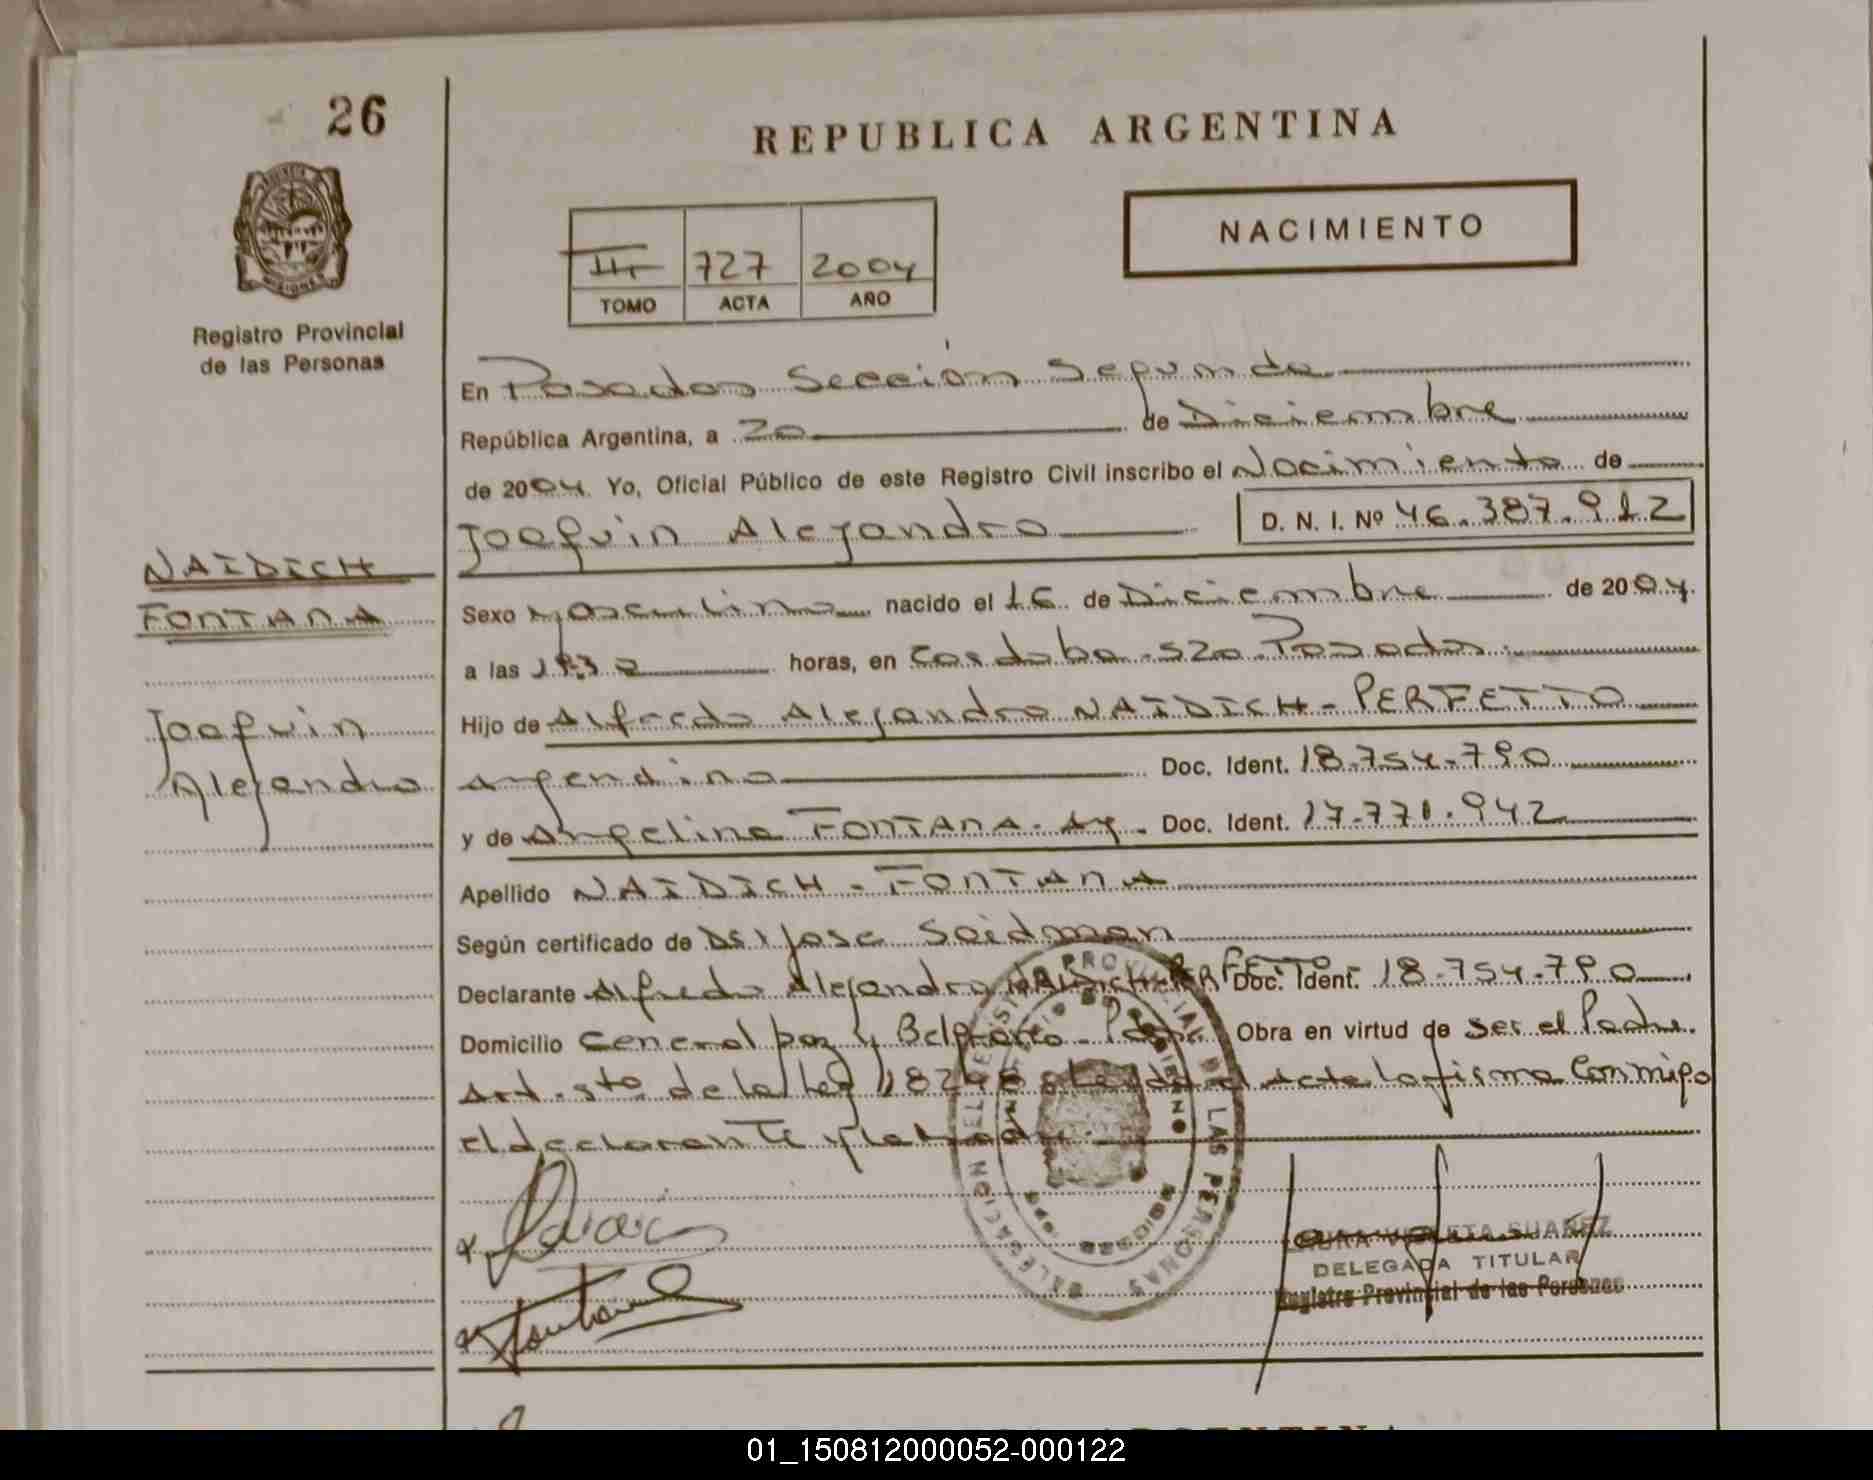 26
REPUBLICA ARGENTINA
NACIMIENTO
III 727 2004
TOMO ACTA AÑO
Registro Provincial
de las Personas
En Posadas Sección Segunda
República Argentina, a 20 de Diciembre
de 2004. Yo, Oficial Público de este Registro Civil inscribo el Nacimiento de
Joaquin Alejandro D. N. I. Nº 46.387.912
NAIDICH
FONTANA
Joaquin
Alejandro
Sexo Masculino nacido el 16 de Diciembre de 2004.
a las horas, en Cordoba 520 Posadas
Hijo de Alfredo Alejandro NAIDICH - PERFETTO
Argentino Doc. Ident. 18.754.790
y de Angelina FONTANA. Ag. Doc. Ident. 17.771.942
Apellido NAIDICH - FONTANA
Según certificado de Jose Seidman
Declarante Alfredo Alejandro NAIDICH PERFETTO Doc. Ident. 18.754.790
Domicilio General paz y Belgrano - Obra en virtud de ser el Padre.
Art. 5to de la Ley 18248 el Acta la firma Conmigo
el declarante y la Madre.
REGISTRO PROVINCIAL DE LAS PERSONAS
DELEGACION
MISIONES
LAURA VIOLETA SUAREZ
DELEGADA TITULAR
Registro Provincial de las Personas
ARGENTINA
01_150812000052-000122